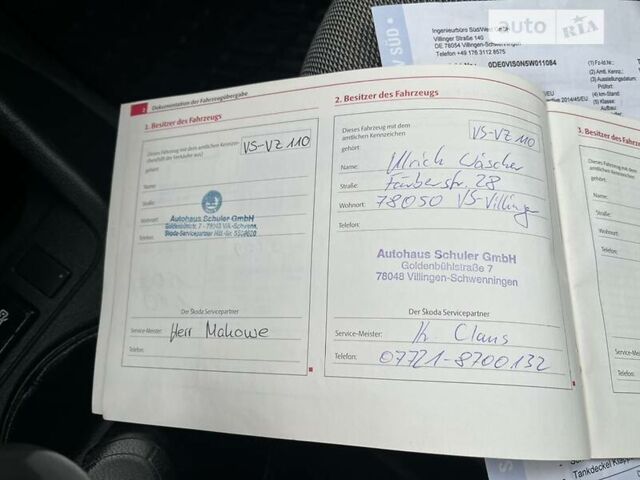 Ingenieurbüro Süd/West GmbH
Villinger Straße 140
DE 78054 Villingen-Schwenningen
Telefon +49 176 3112 8575
auto RIA
SÜD
0DE0VIS0N5W011084
(1) Fz-Id.Nr.:
(2) Amtl. Kennz.:
(3) Ausstellungsdatum:
Prüfort:
(4) km-Stand:
(5) Klasse:
2014/45/EU
2 Dokumentation der Fahrzeugübergabe
1. Besitzer des Fahrzeugs
Dieses Fahrzeug mit dem amtlichen Kennzei-
VS-VZ 110
gehört:
Name:
Straße:
Wohnort:
Telefon:
Autohaus Schuler GmbH
Der Škoda Servicepartner
Service-Meister: Herr Makowe
Telefon:
2. Besitzer des Fahrzeugs
Dieses Fahrzeug mit dem
amtlichen Kennzeichen
VS-VZ 110
gehört:
Name: Ulrich Wäscher
Straße: Färberstr. 28
Wohnort: 78050 VS-Villingen
Telefon:
Autohaus Schuler GmbH
Goldenbühlstraße 7
78048 Villingen-Schwenningen
Der Škoda Servicepartner
Service-Meister: Hr Claus
Telefon: 07721-8700132
3. Besitzer des Fahrzeugs
Dieses Fahrzeug
amtlichen Kennz
gehört:
Name:
Straße:
Wohnort:
Telefon:
Service-Meister:
Telefon:
Tankdeckel Klappe